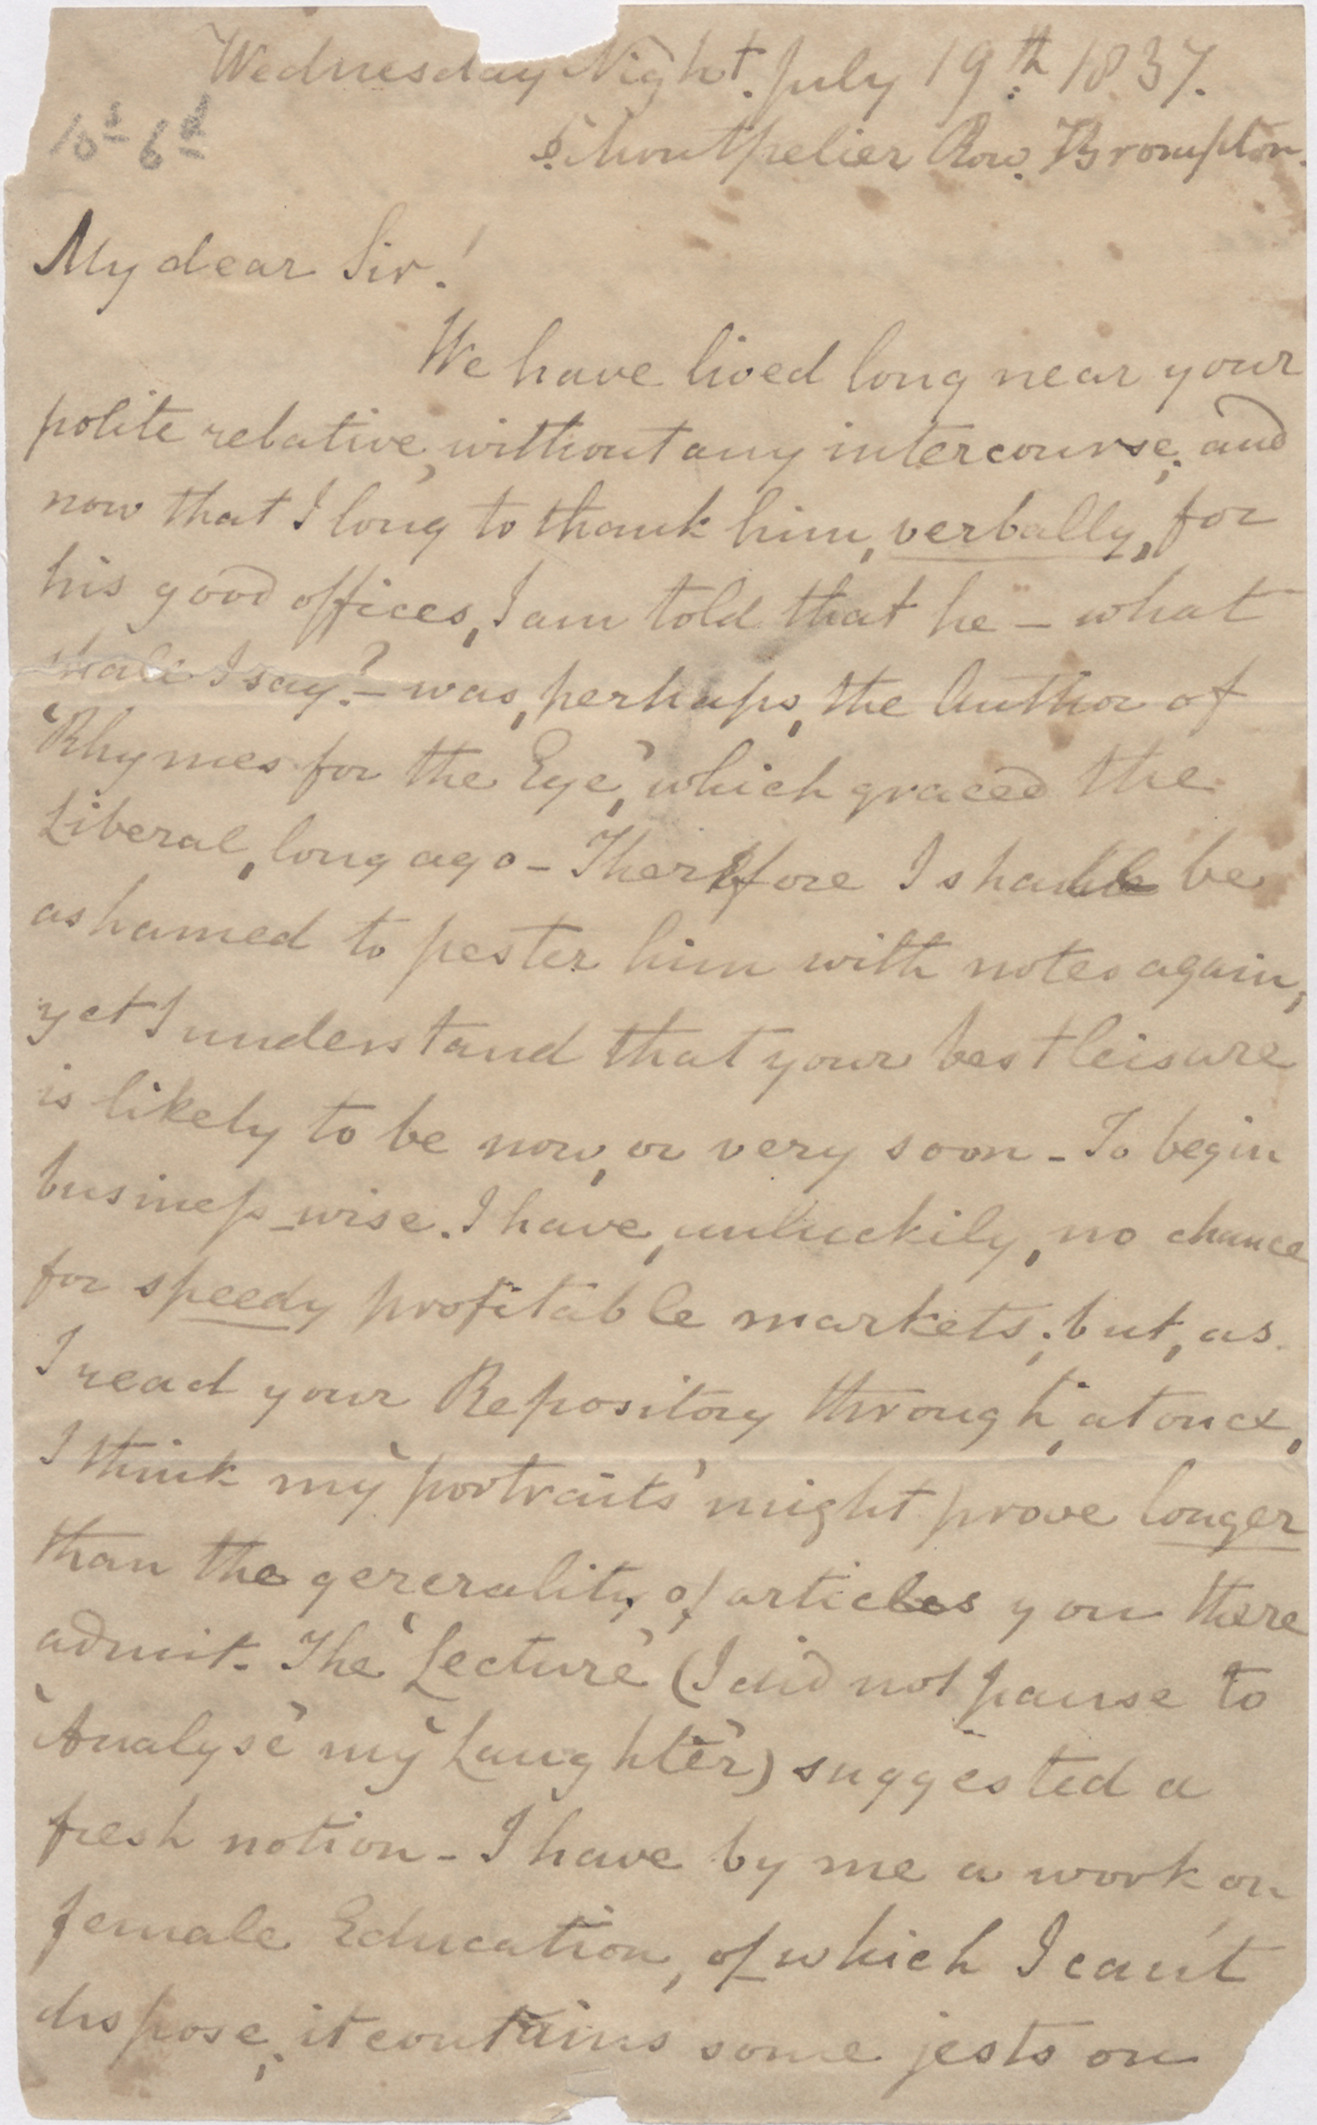 Wednesday Night. July 19th 1837.
10s 6d
5. Montpelier Row. Brompton.
My dear Sir!
We have lived long near your
polite relative, without any intercourse; and
now that I long to thank him, verbally, for
his good offices, I am told that he – what
shall I say? – was, perhaps, the Author of
'Rhymes for the Eye,' which graced the
Liberal, long ago – Therefore I shall be
ashamed to pester him with notes again,
yet I understand that your best leisure
is likely to be now, or very soon – To begin
business-wise. I have, unluckily, no chance
for speedy profitable markets; but, as
I read your Repository through, at once,
I think my 'portraits' might prove longer
than the generality of articles you there
admit. The 'Lecture' (I did not pause to
'Analyse' my 'Laughter') suggested a
fresh notion – I have by me a work on
female Education, of which I can't
dispose; it contains some jests on